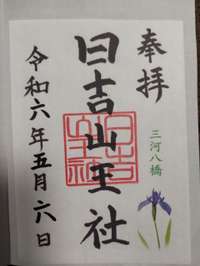 奉拝
三河八橋
日吉山王社
令和六年五月六日